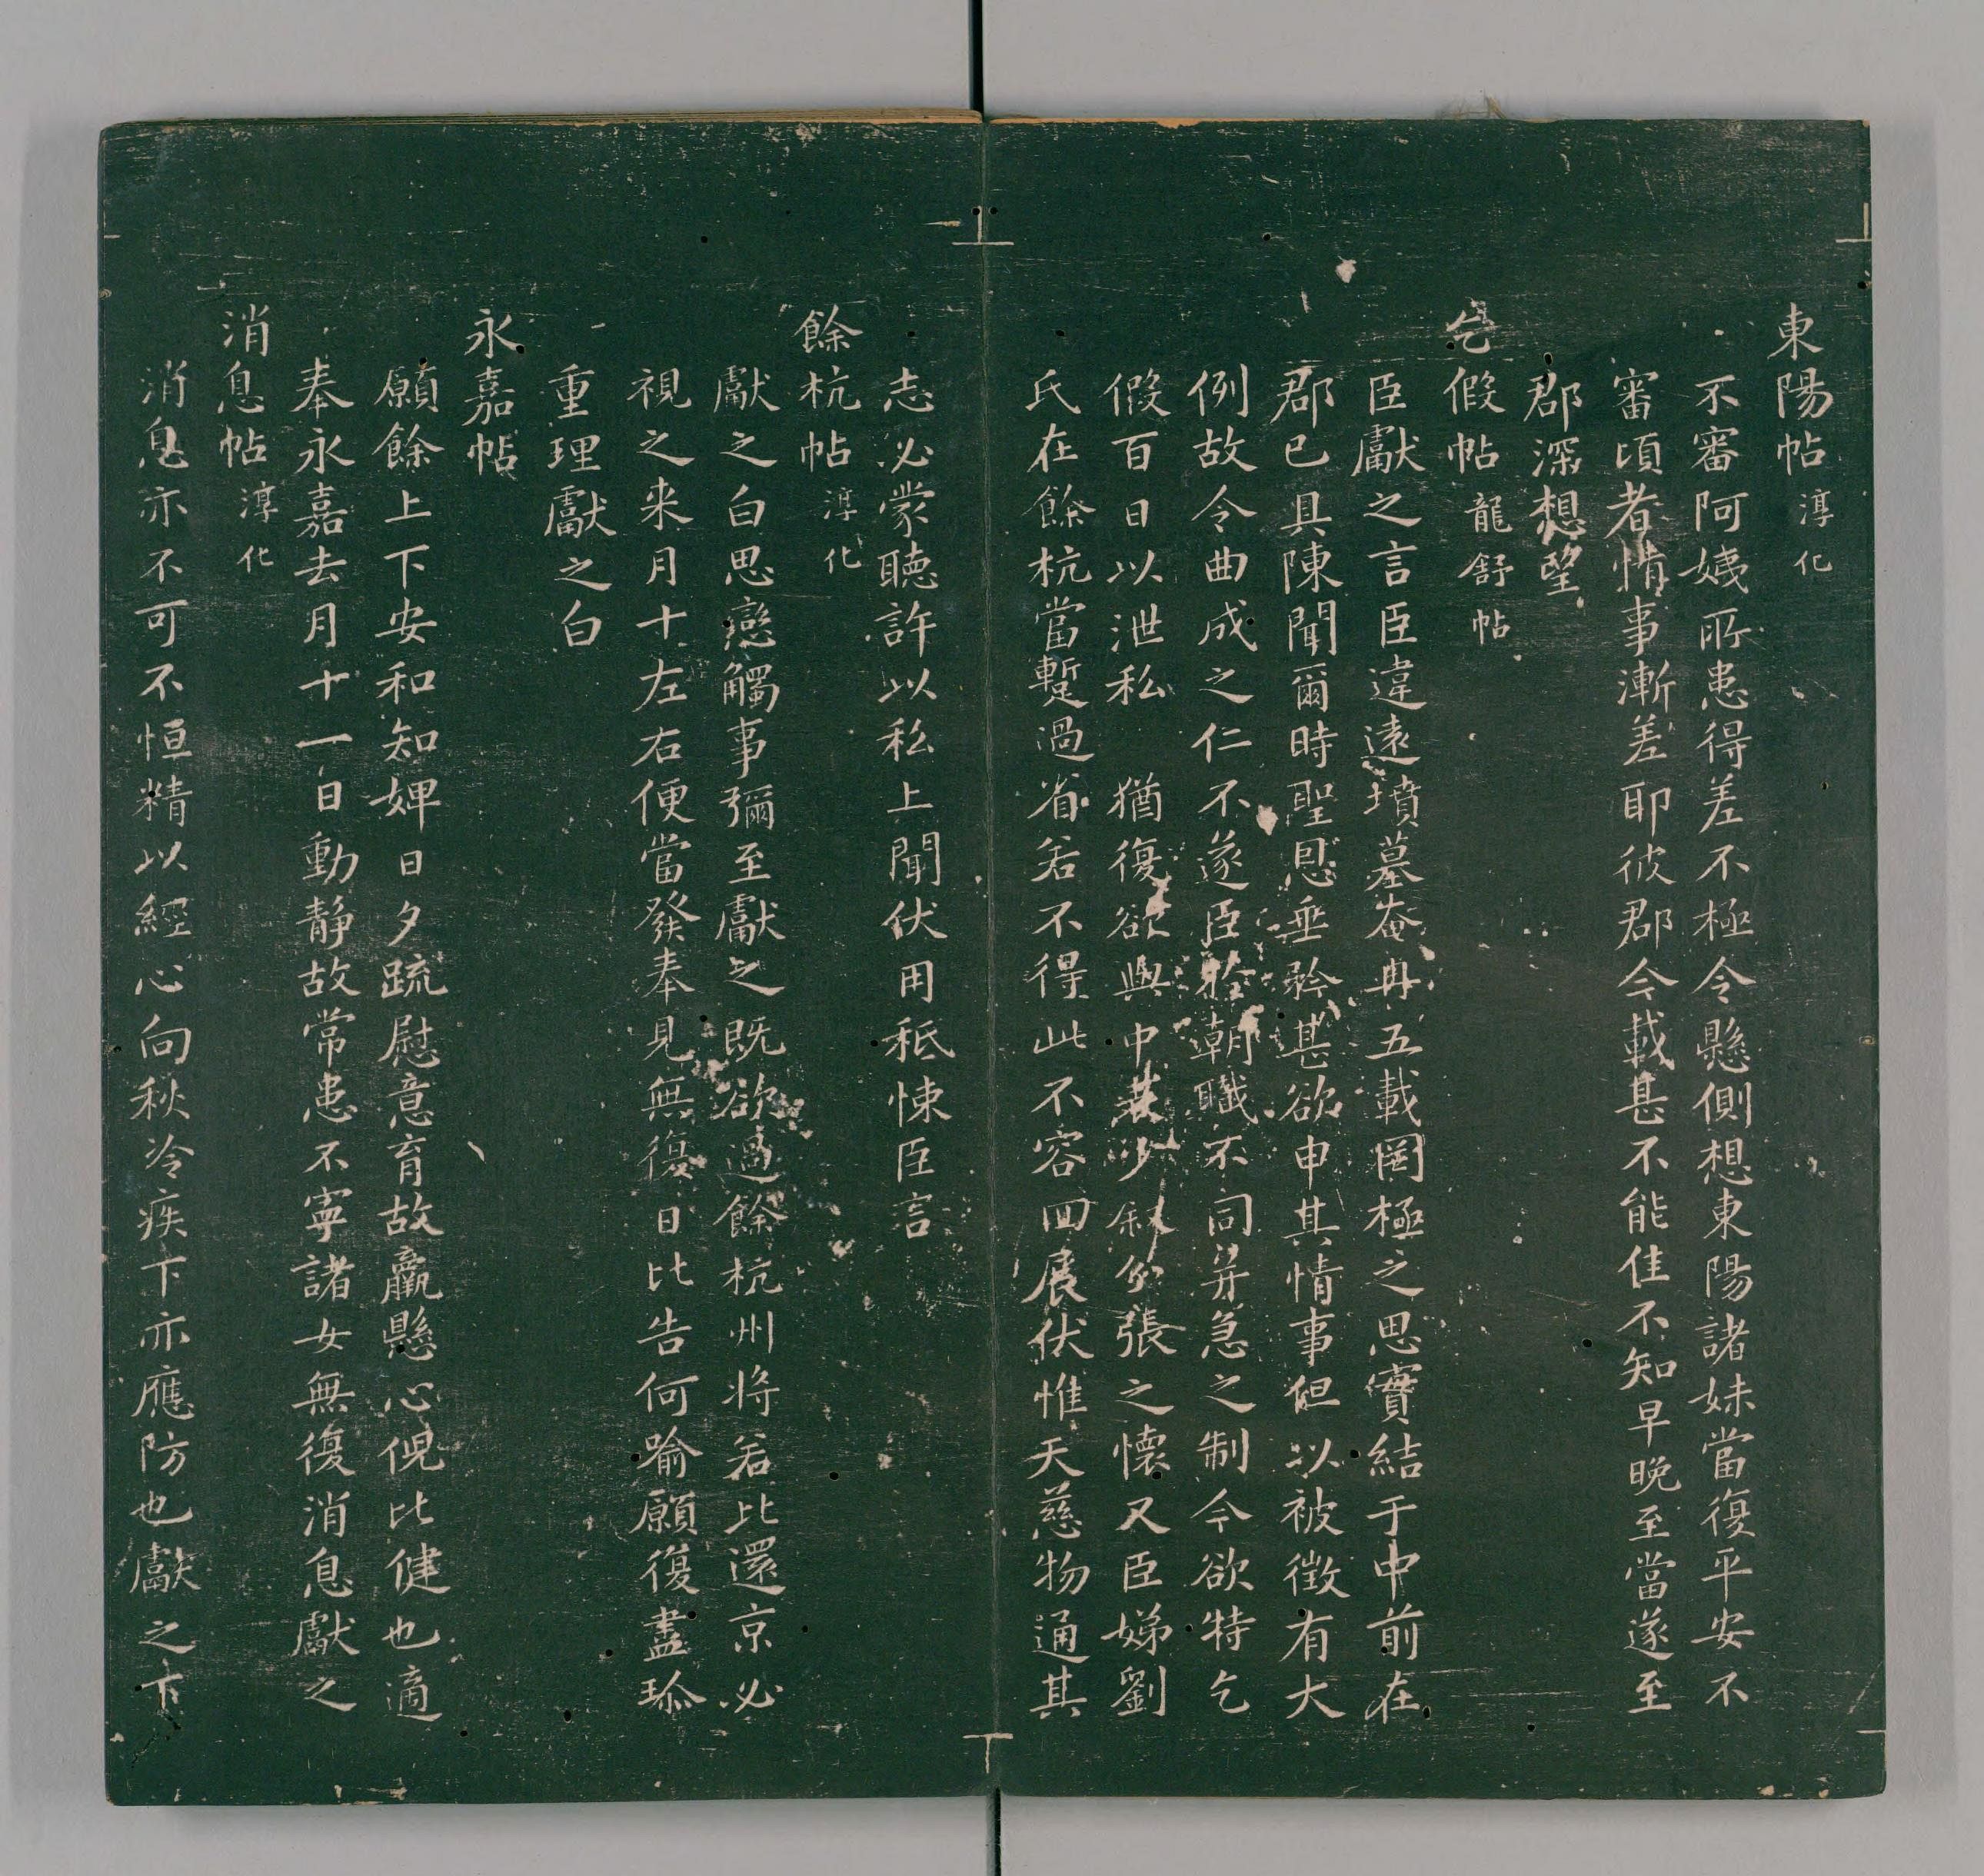 東陽帖 淳化
不審阿姨所患得差不極令懸惻想東陽諸妹當復平安不
審頃者情事漸差耶彼郡今載甚不能佳不知早晚至當遂至
郡深想望
乞假帖 龍舒帖
臣獻之言臣違遠墳墓奄冉五載罔極之思實結于中前在
郡已具陳聞爾時聖恩垂矜甚欲申其情事但以被徵有大
例故令曲成之仁不遂臣於朝職不同并急之制今欲特乞
假百日以泄私 猶復欲與中表少敘分張之懷又臣娣劉
氏在餘杭當暫過省若不得此不容回展伏惟天慈物通其
志必蒙聽許以私上聞伏用秖悚臣言
餘杭帖 淳化
獻之白思戀觸事彌至獻之既欲過餘杭州將若比還京必
視之來月十左右便當發奉見無復日比告何喻願復盡珎
重理獻之白
永嘉帖
願餘上下安和知婢日夕疏慰意育故羸懸心俔比健也適
奉永嘉去月十一日動靜故常患不寧諸女無復消息獻之
消息帖 淳化
消息亦不可不恒精以經心向秋冷疾下亦應防也獻之下